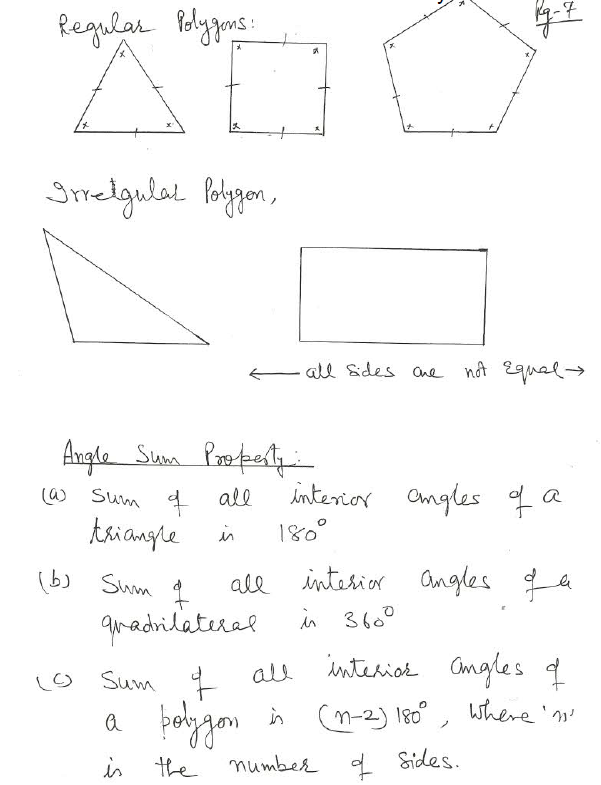 Regular Polygons:
Pg-7
Irregular Polygon,
← all sides are not Equal →
Angle Sum Property:
(a) Sum of all interior angles of a
triangle is 180°
(b) Sum of all interior angles of a
quadrilateral is 360°
(c) Sum of all interior angles of
a polygon is (n-2) 180°, Where 'n'
is the number of sides.